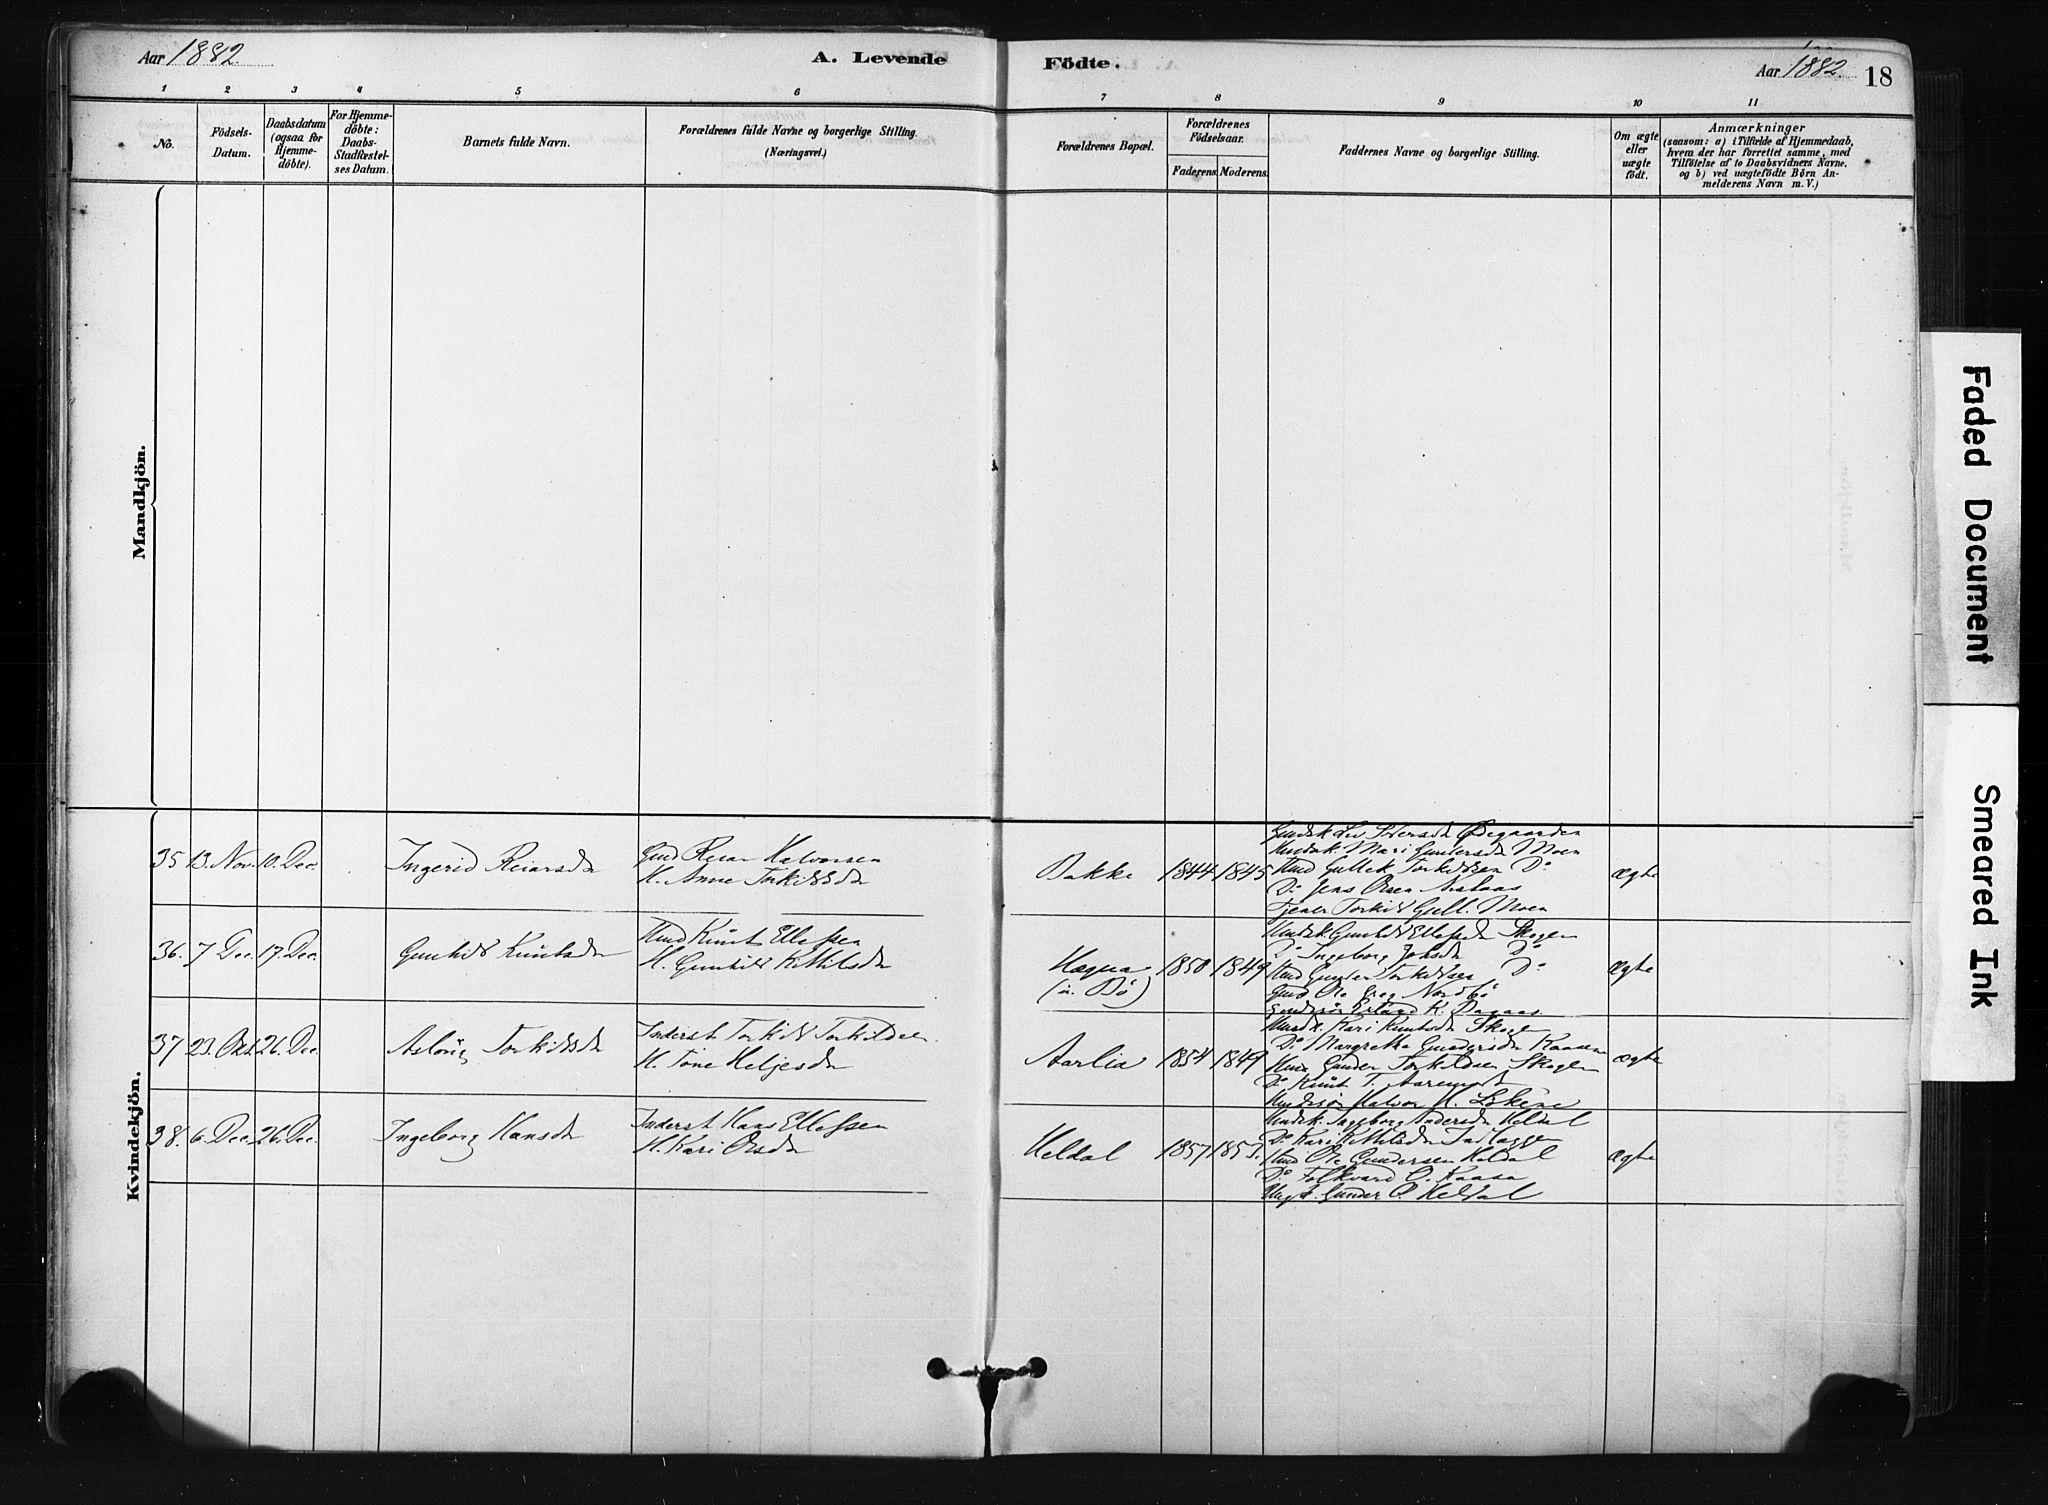 Aar 1882.
A. Levende
Födte.
Aar 1882.
18
1
2
3
4
5
6
7
8
9
10
11
No.
Födsels-
Datum.
Daabsdatum
(ogsaa for
Hjemme-
döbte).
For Hjemme-
döbte:
Daabs-
Stadfæstel-
ses Datum.
Barnets fulde Navn.
Forældrenes fulde Navne og borgerlige Stilling.
(Næringsvei.)
Forældrenes Bopæl.
Forældrenes
Födselsaar.
Faderens.
Moderens.
Faddernes Navne og borgerlige Stilling.
Om ægte
eller
uægte
födt.
Anmærkninger
(saasom: a) i Tilfælde af Hjemmedaab,
hvem der har forrettet samme, med
Tilföielse af to Daabsvidners Navne.
og b) ved uægtefödte Börn An-
melderens Navn m. V.)
Mandkjön.
Kvindekjön.
35 13. Nov. 10. Dec. Ingerid Reiarsdr
Gmd Reiar Halvorsen
H. Anne Torkildsdr
Bakke 1844 1845
Mari Gundersdr Moen
Hmd Gullek Torkildsen Do
Do Jens Olsen
Tjener Torkild Gull. Moen
ægte
36. 7 Dec. 17. Dec. Gunhild Knutsdr
Hmd Knut Ellefsen
H. Gunhild Kittilsdr
Hægna
(i Bö)
1850 1849
Gunhild Ellefsdr Skogen
Do Ingeborg Johsdr Do
Hmd Gunder Torkildsen Do
Gmd Ole Greg. Nordbö
ægte
37 23. Okt. 26. Dec. Aslaug Torkildsdr
Inderst Torkild Torkildsen
H. Tone Heljesdr
Aarlia 1854 1849
Kari Knutsdr Skogen
Do Margrethe Gundersdr Kaasa
Hmd Gunder Torkildsen Skogen
Do Knut T.
Halvor H.
ægte
38. 6. Dec. 26. Dec. Ingeborg Hansdr
Inderst Hans Ellefsen
H. Kari Olsdr
Heldal 1857
Ingeborg Andersdr Heldal
Do Kari Kittilsdr
Hmd Ole Gundersen Heldal
Do Folkvard O. Kaasa
Ungk. Gunder O Heldal
ægte
Faded Document
Smeared Ink